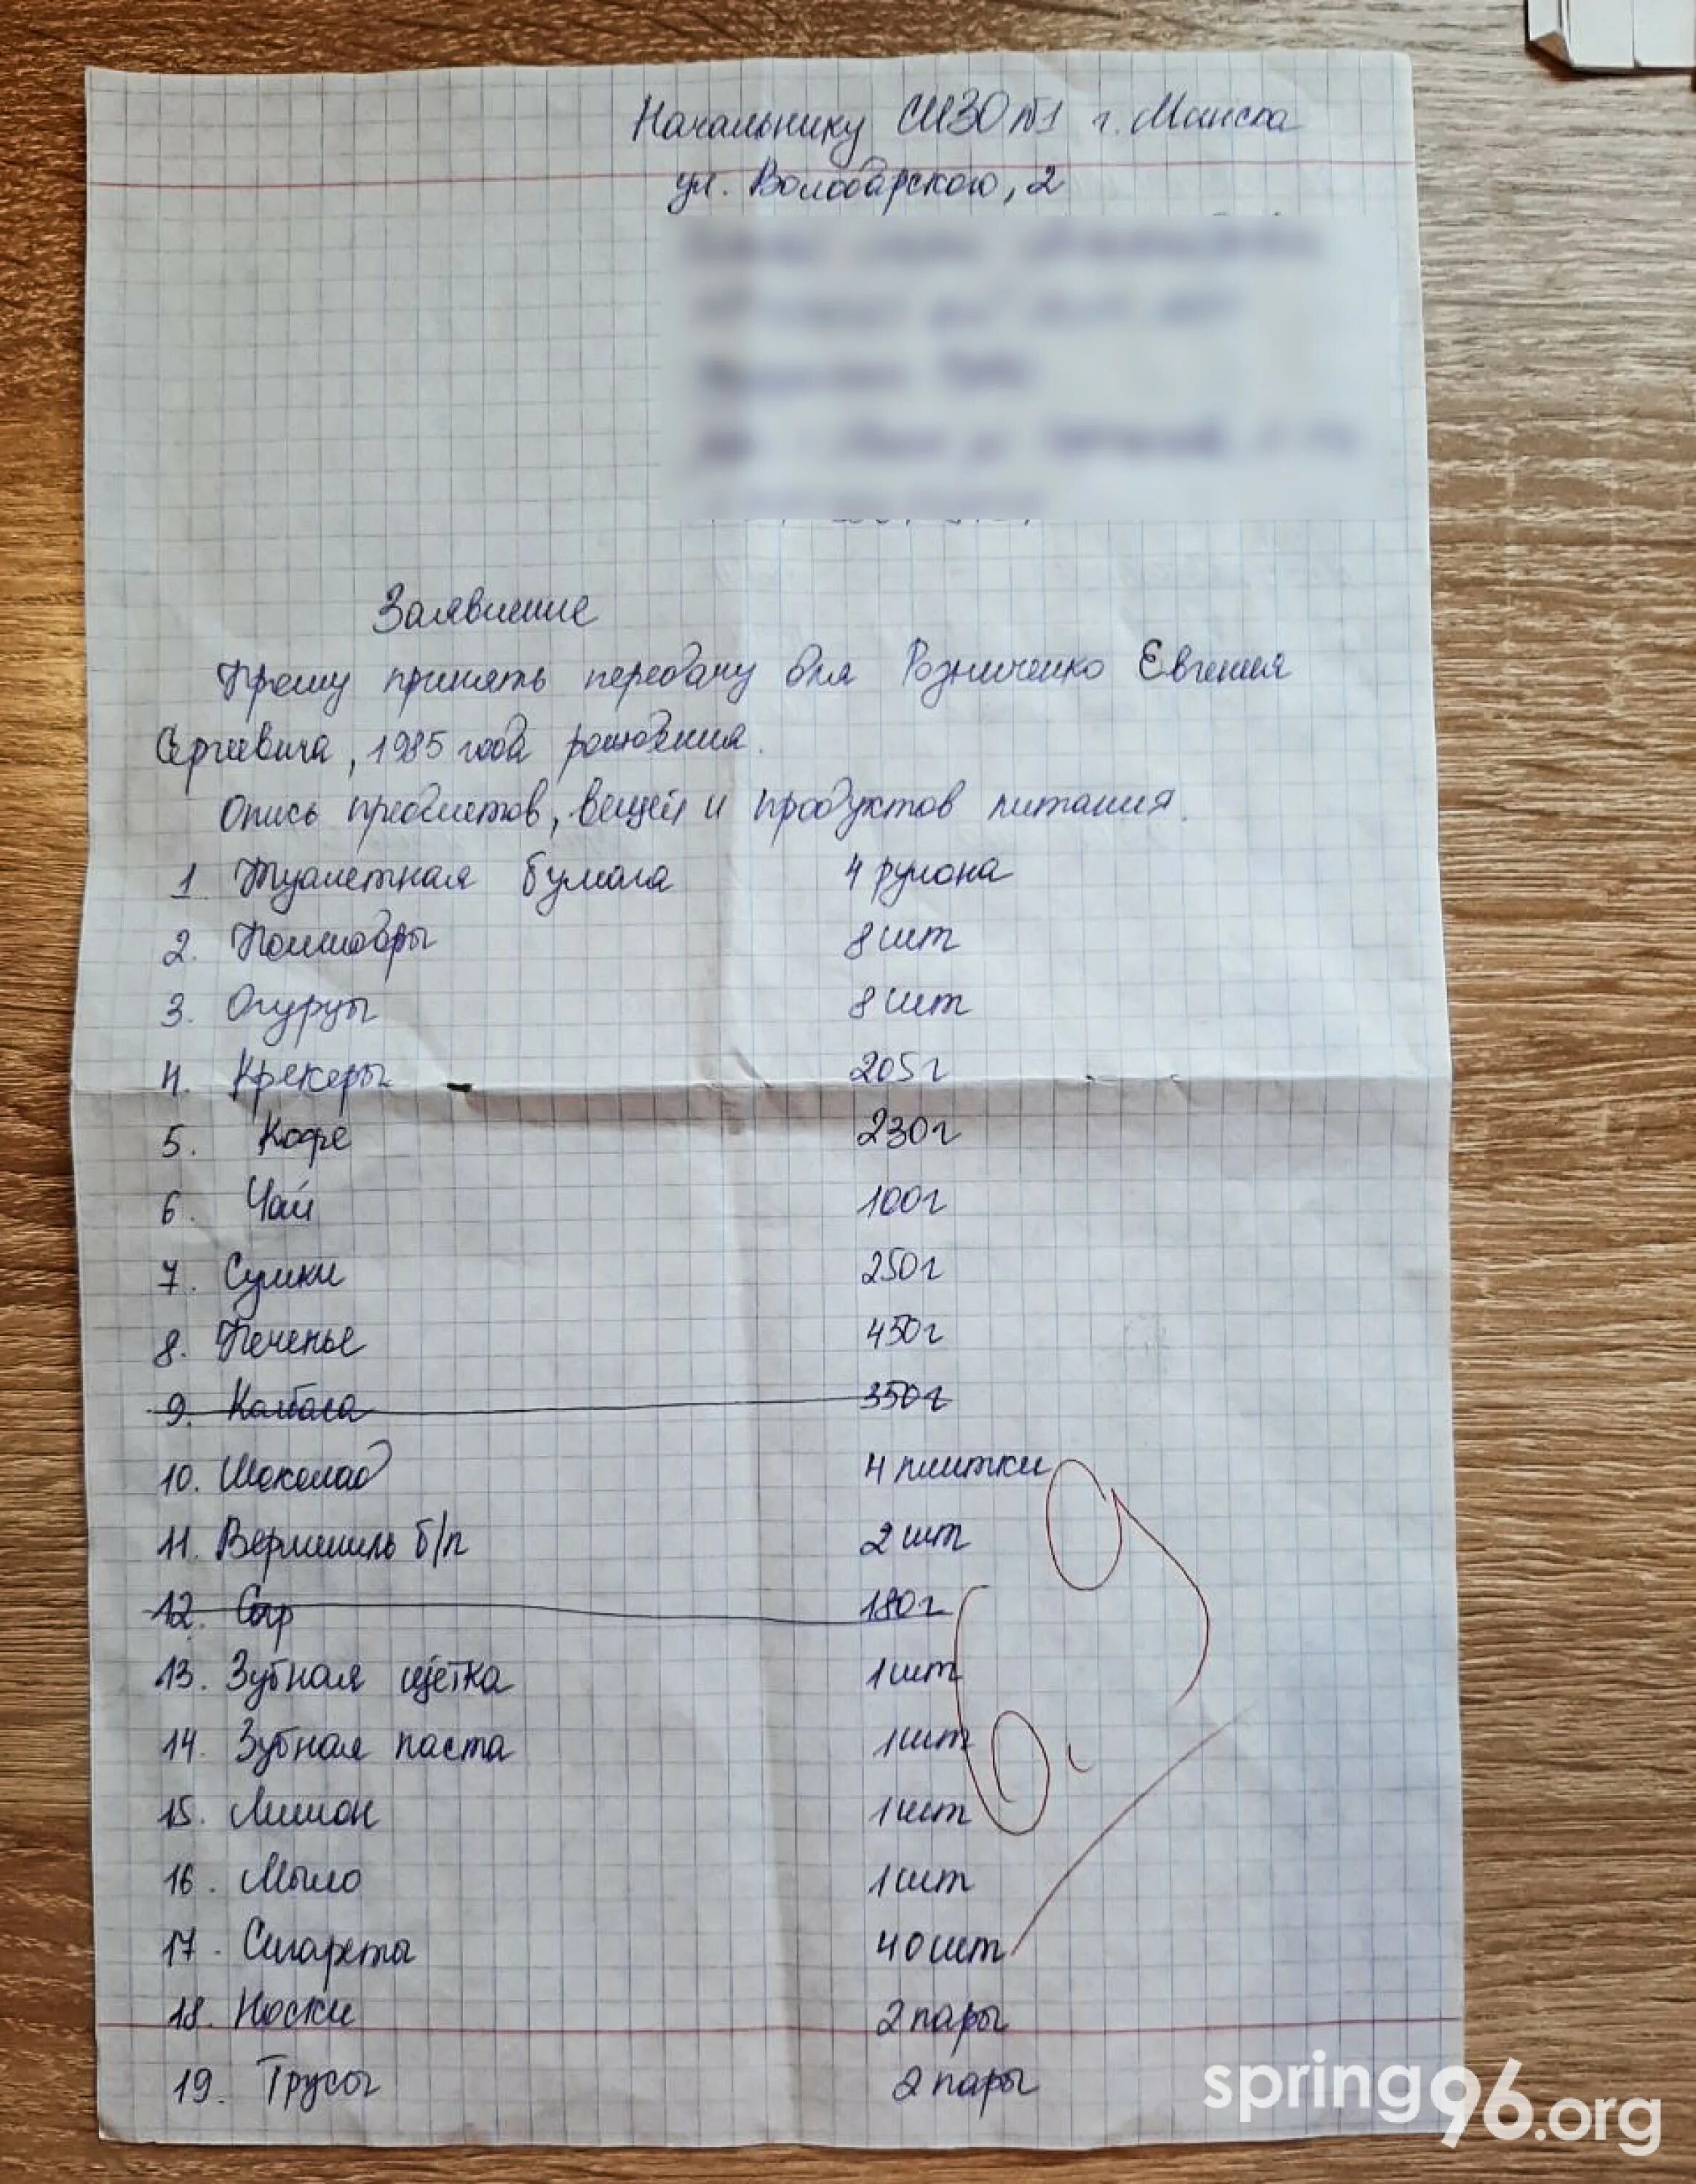 Начальнику СИЗО №1 г. Минска
ул. Володарского, 2
Заявление
Прошу принять передачу для Розниченко Евгения
Сергеевича, 1985 года рождения.
Опись предметов, вещей и продуктов питания.
1. Туалетная бумага 4 рулона
2. Помидоры 8 шт
3. Огурцы 8 шт
4. Крекеры 205г
5. Кофе 230г
6. Чай 100г
7. Сушки 250г
8. Печенье 450г
9. Колбаса 350г
10. Шоколад 4 плитки
11. Вермишель б/п 2 шт
12. Сыр 180г
13. Зубная щётка 1 шт
14. Зубная паста 1 шт
15. Лимон 1 шт
16. Мыло 1 шт
17. Сигареты 40 шт
18. Носки 2 пары
19. Трусы 2 пары
spring96.org